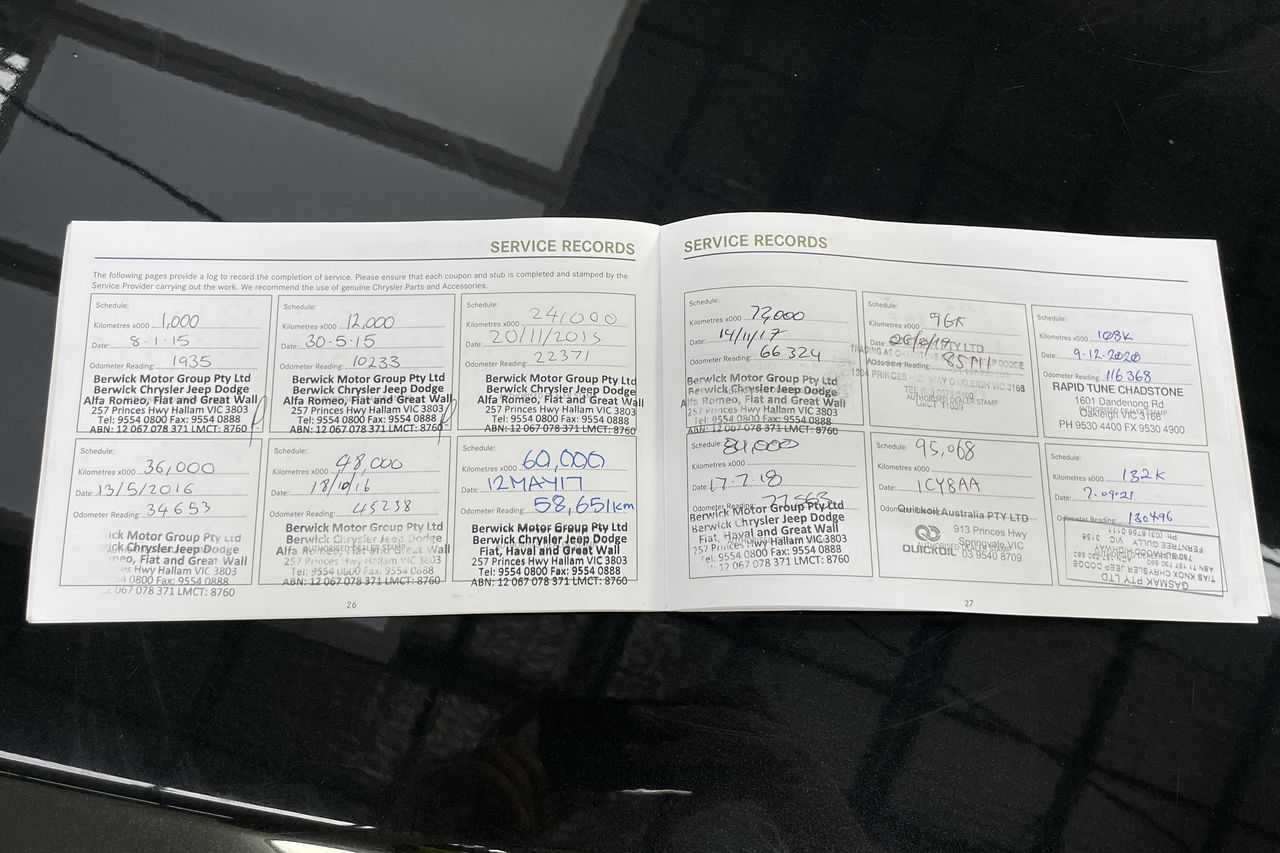 SERVICE RECORDS
The following pages provide a log to record the completion of service. Please ensure that each coupon and stub is completed and stamped by the
Service Provider carrying out the work. We recommend the use of genuine Chrysler Parts and Accessories.
Schedule:
Kilometres x000 1,000
Date: 8-1-15
Odometer Reading: 1935
Berwick Motor Group Pty Ltd
Berwick Chrysler Jeep Dodge
Alfa Romeo, Fiat and Great Wall
257 Princes Hwy Hallam VIC 3803
Tel: 9554 0800 Fax: 9554 0888
ABN: 12 067 078 371 LMCT: 8760
Schedule:
Kilometres x000 12,000
Date: 30-5-15
Odometer Reading: 10233
Berwick Motor Group Pty Ltd
Berwick Chrysler Jeep Dodge
Alfa Romeo, Fiat and Great Wall
257 Princes Hwy Hallam VIC 3803
Tel: 9554 0800 Fax: 9554 0888
ABN: 12 067 078 371 LMCT: 8760
Schedule:
Kilometres x000 24,000
Date: 20/11/2015
Odometer Reading: 22371
Berwick Motor Group Pty Ltd
Berwick Chrysler Jeep Dodge
Alfa Romeo, Fiat and Great Wall
257 Princes Hwy Hallam VIC 3803
Tel: 9554 0800 Fax: 9554 0888
ABN: 12 067 078 371 LMCT: 8760
Schedule:
Kilometres x000 36,000
Date: 13/5/2016
Odometer Reading: 34653
ick Motor Group Pty Ltd
ick Chrysler Jeep Dodge
meo, Fiat and Great Wall
es Hwy Hallam VIC 3803
0800 Fax: 9554 0888
067 078 371 LMCT: 8760
Schedule:
Kilometres x000 48,000
Date: 18/10/16
Odometer Reading: 45238
Berwick Motor Group Pty Ltd
Berwick Chrysler Jeep Dodge
Alfa Romeo, Fiat and Great Wall
AUTHORISED DEALER STAMP
257 Princes Hwy Hallam VIC 3803
Tel: 9554 0800 Fax: 9554 0888
ABN: 12 067 078 371 LMCT: 8760
Schedule:
Kilometres x000 60,000
Date: 12MAY17
Odometer Reading: 58,651km
Berwick Motor Group Pty Ltd
Berwick Chrysler Jeep Dodge
Fiat, Haval and Great Wall
257 Princes Hwy Hallam VIC 3803
Tel: 9554 0800 Fax: 9554 0888
ABN: 12 067 078 371 LMCT: 8760
26
SERVICE RECORDS
Schedule:
Kilometres x000 72,000
Date: 14/11/17
Odometer Reading: 66324
Berwick Motor Group Pty Ltd
Berwick Chrysler Jeep Dodge
Romeo, Fiat and Great Wall
257 Princes Hwy Hallam VIC 3803
Tel: 9554 0800 Fax: 9554 0888
ABN: 12 067 078 371 LMCT: 8760
Schedule:
Kilometres x000 96K
Date: PTY LTD
Odometer Reading:
PRINCES OAKLEIGH VIC 3166
AUTHORISED DEALER STAMP
LMCT 11059
Schedule:
Kilometres x000 108K
Date: 9-12-2020
Odometer Reading: 116368
RAPID TUNE CHADSTONE
1601 Dandenong Rd
AUTHORISED DEALER STAMP
Oakleigh VIC 3166
PH 9530 4400 FX 9530 4900
Schedule: 84,000
Kilometres x000
Date: 17-7-18
Odometer Reading: 77563
Berwick Motor Group Pty Ltd
Berwick Chrysler Jeep Dodge
Fiat, Haval and Great Wall
257 Princes Hwy Hallam VIC 3803
Tel: 9554 0800 Fax: 9554 0888
067 078 371 LMCT: 8760
Schedule: 95,068
Kilometres x000
Date: 1CY8AA
Quickoil Australia PTY LTD
913 Princes Hwy
Springvale VIC
QUICKOIL
03 9540 8709
Schedule:
Kilometres x000 132K
Date: 7-09-21
Odometer Reading: 130496
GASMAK PTY LTD
T/AS KNOX CHRYSLER JEEP DODGE
FERNTREE GULLY VIC 3156
27